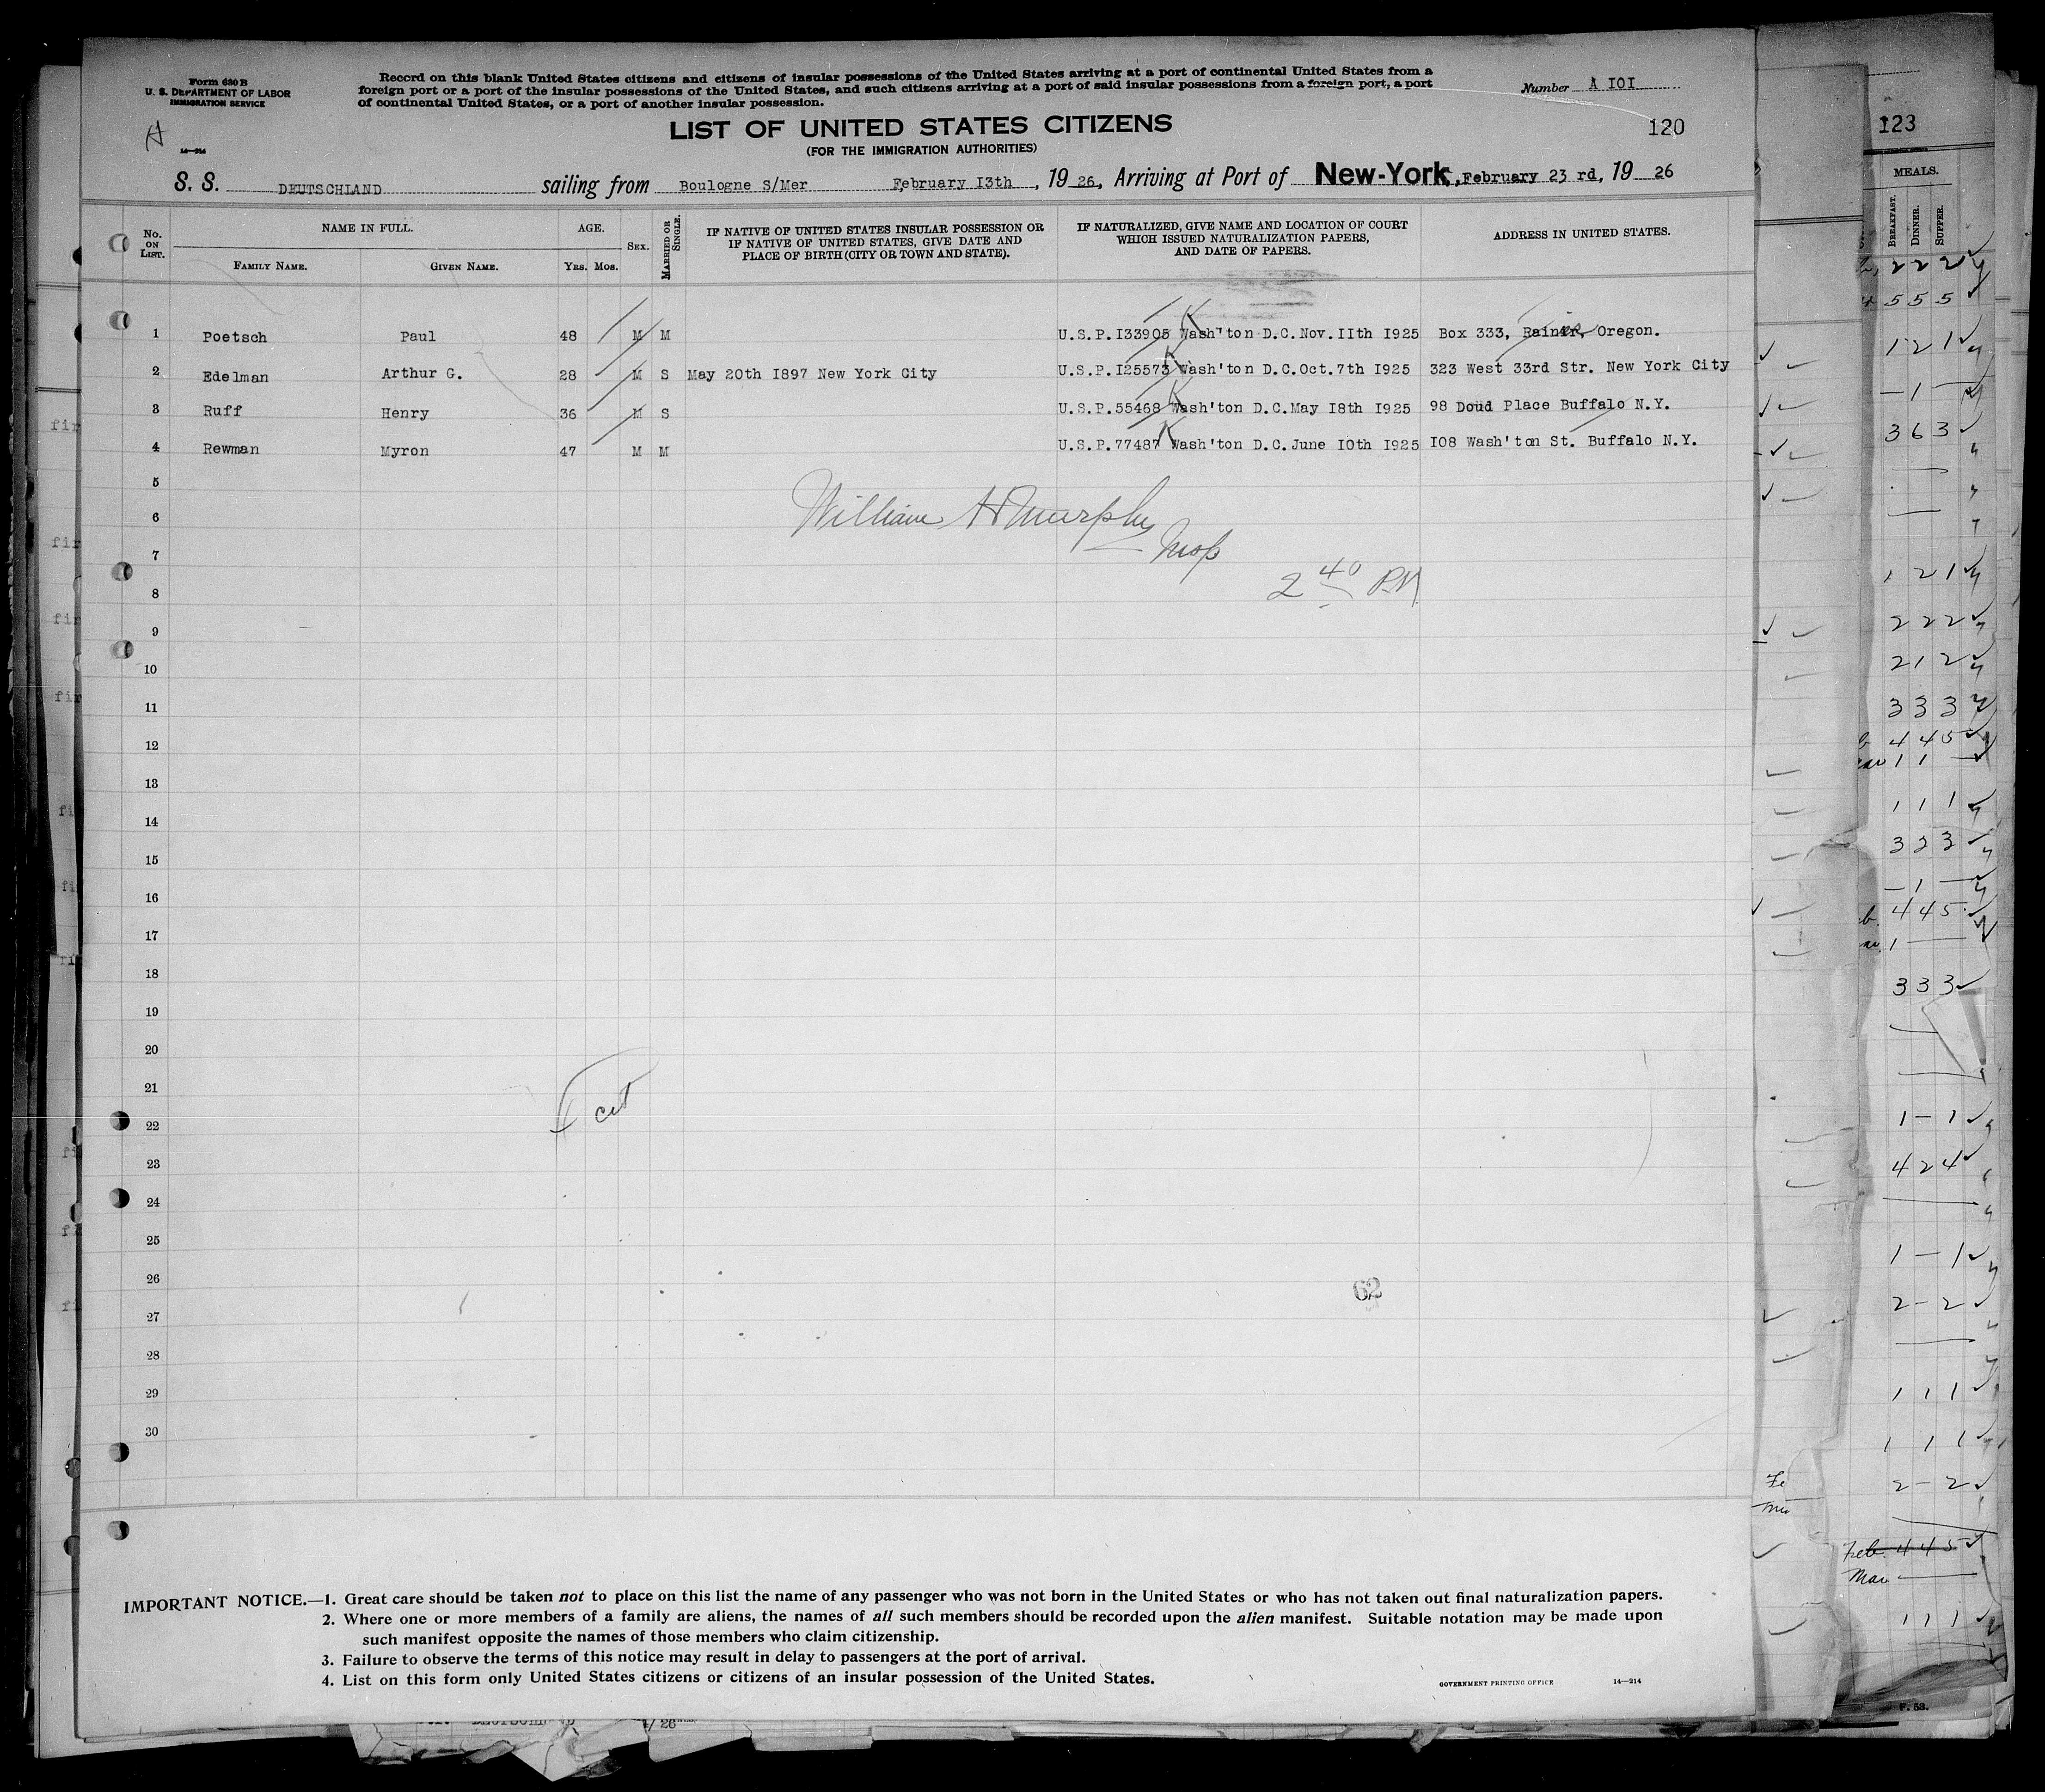 Form 630 B
U. S. DEPARTMENT OF LABOR
IMMIGRATION SERVICE
Record on this blank United States citizens and citizens of insular possessions of the United States arriving at a port of continental United States from a
foreign port or a port of the insular possessions of the United States, and such citizens arriving at a port of said insular possessions from a foreign port, a port
of continental United States, or a port of another insular possession.
Number A IOI
14—214
LIST OF UNITED STATES CITIZENS
120
(FOR THE IMMIGRATION AUTHORITIES)
S. S. DEUTSCHLAND sailing from Boulogne S/Mer February I3th, 1926, Arriving at Port of New-York, February 23 rd, 19 26
No. ON LIST. NAME IN FULL. AGE. SEX. MARRIED OR SINGLE. IF NATIVE OF UNITED STATES INSULAR POSSESSION OR IF NATIVE OF UNITED STATES, GIVE DATE AND PLACE OF BIRTH (CITY OR TOWN AND STATE). IF NATURALIZED, GIVE NAME AND LOCATION OF COURT WHICH ISSUED NATURALIZATION PAPERS, AND DATE OF PAPERS. ADDRESS IN UNITED STATES.
FAMILY NAME. GIVEN NAME. YRS. MOS.
1 Poetsch Paul 48 M M U.S.P.I33905 Wash'ton D.C.Nov.IIth I925 Box 333, Rainier, Oregon.
2 Edelman Arthur G. 28 M S May 20th I897 New York City U.S.P.I25573 Wash'ton D.C.Oct.7th I925 323 West 33rd Str. New York City
3 Ruff Henry 36 M S U.S.P.55468 Wash'ton D.C.May I8th I925 98 Doud Place Buffalo N.Y.
4 Rewman Myron 47 M M U.S.P.77487 Wash'ton D.C.June I0th I925 I08 Wash'ton St. Buffalo N.Y.
5
6 William H Murphy
7 Insp
8 2 40 PM
9
10
11
12
13
14
15
16
17
18
19
20
21
22
23
24
25
26
62
27
28
29
30
IMPORTANT NOTICE.—1. Great care should be taken not to place on this list the name of any passenger who was not born in the United States or who has not taken out final naturalization papers.
2. Where one or more members of a family are aliens, the names of all such members should be recorded upon the alien manifest. Suitable notation may be made upon
such manifest opposite the names of those members who claim citizenship.
3. Failure to observe the terms of this notice may result in delay to passengers at the port of arrival.
4. List on this form only United States citizens or citizens of an insular possession of the United States.
GOVERNMENT PRINTING OFFICE 14—214
123
MEALS.
BREAKFAST. DINNER. SUPPER.
2 2 2
5 5 5
1 2 1
— 1 —
3 6 3
1 2 1
2 2 2
2 1 2
3 3 3
4 4 5
1 1 —
1 1 1
3 2 3
— 1 —
4 4 5
1 —
3 3 3
1 — 1
4 2 4
1 — 1
2 — 2
1 1 1
1 1 1
2 — 2
Feb. 4 4 5
Mar
1 1 1
F. 53.